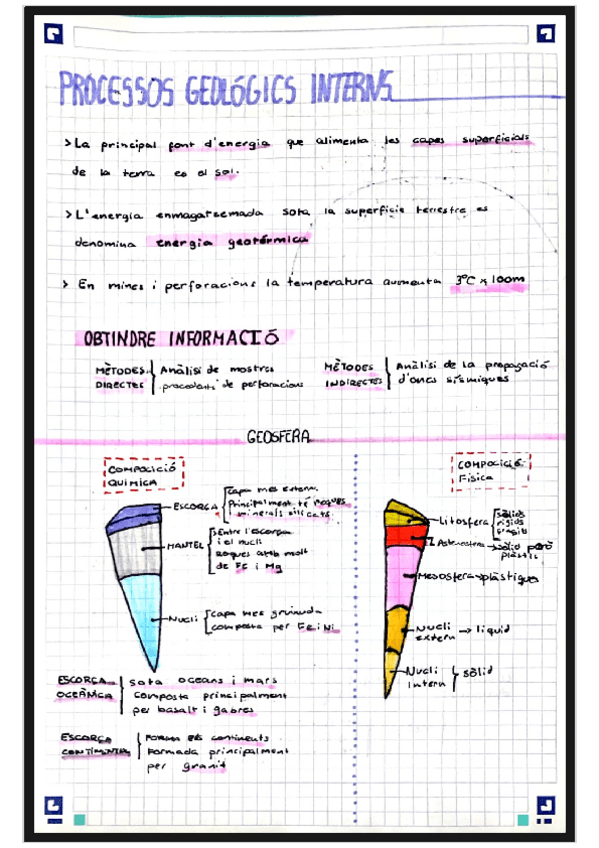 PROCESSOS GEOLÓGICS INTERNS
>La principal font d'energia que alimenta les capes superficials
de la terra es el sol.
>L'energia enmagatsemada sota la superficie terrestre es
denomina energia geotèrmica
> En mines i perforacions la temperatura aumenta 3°C x 100m
OBTINDRE INFORMACIÓ
MÈTODES DIRECTES
Anàlisi de mostres
procedents de perforacions
MÈTODES INDIRECTES
Anàlisi de la propagació
d'ones sísmiques
GEOSFERA
COMPOCICIÓ
QUIMICA
ESCORÇA
Capa mes externa.
Principalment té roques
i minerals silicats.
MANTEL
Entre l'escorça
i el nucli
Roques amb molt
de Fe i Mg
NUCLI
Capa mes gruixuda
composta per Fe i Ni
ESCORÇA
OCEÀNICA
sota oceans i mars
Composta principalment
per basalt i gabres
ESCORÇA
CONTINENTAL
FORMA ELS continents
Formada principalment
per granit
COMPOCICIÓ
Física
Litosfera
Sòlids
rígids
Astenosfera
sòlid però
plàstic
Mesosfera→plàstique
Nucli
extern → liquid
Nucli
intern
sòlid